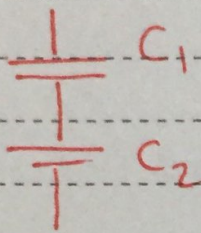 C₁
C₂